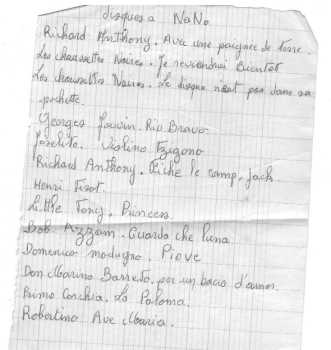 disques a NaNo
Richard Anthony. Avec une poignee de terre.
Les chaussettes Noires. Je reviendrai bientot
Les chaussettes Noires. Le disque n'est pas dans sa
pochette.
Georges Jouvin. Rio Bravo.
Joselito. Violino Tzigano
Richard Anthony. Fiche le camp, Jack
Henri Tisot.
Little Tony. Princess.
Bob Azzam. Guarda che luna.
Domenico modugno. Piove
Don Marino Barreto. per un bacio d'amor.
Primo Corchia. La Paloma.
Robertino Ave Maria.